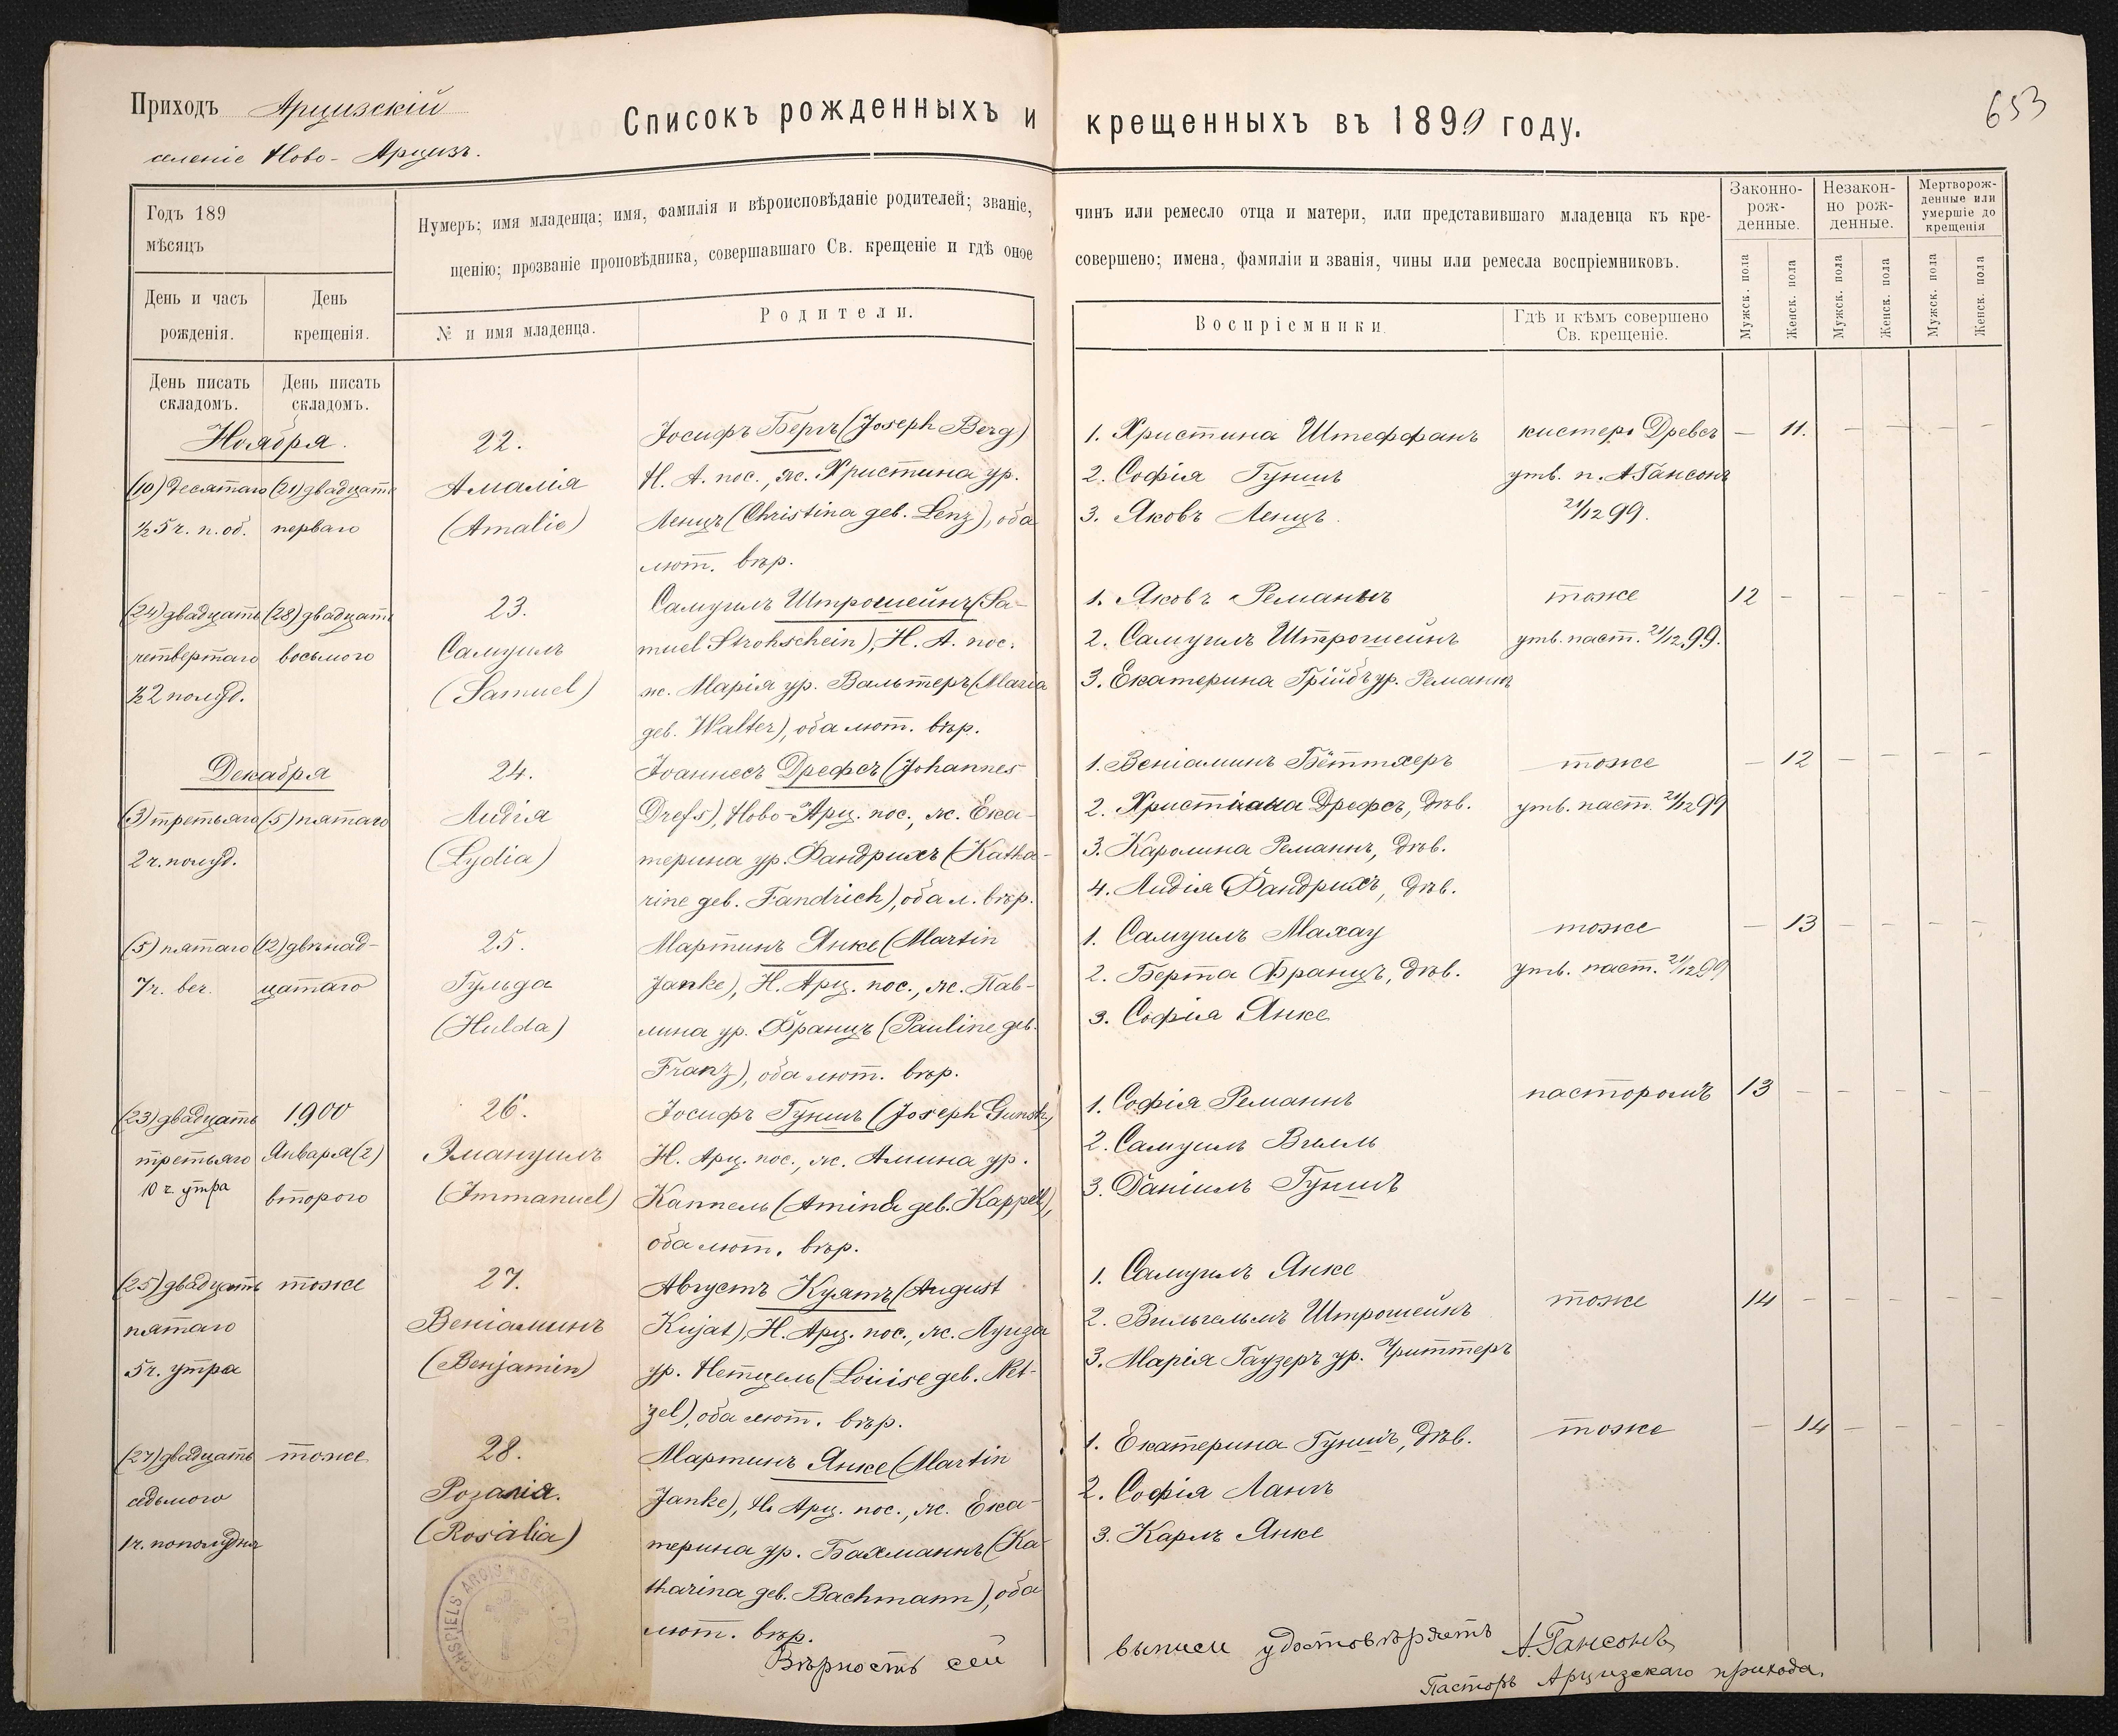 Приходъ Арцизскій
селеніе Ново-Арцизъ.
Списокъ рожденныхъ и крещенныхъ въ 1899 году.
653
Годъ 189
мѣсяцъ
Нумеръ; имя младенца; имя, фамилія и вѣроисповѣданіе родителей; званіе, чинъ или ремесло отца и матери, или представившаго младенца къ кре-
щенію; прозваніе проповѣдника, совершавшаго Св. крещеніе и гдѣ оное совершено; имена, фамиліи и званія, чины или ремесла воспріемниковъ.
День и часъ
рожденія.
День
крещенія.
№ и имя младенца.
Родители.
Воспріемники.
Гдѣ и кѣмъ совершено
Св. крещеніе.
Законно-
рож-
денные.
Незакон-
но рож-
денные.
Мертворож-
денные или
умершіе до
крещенія
Мужск. пола
Женск. пола
Мужск. пола
Женск. пола
Мужск. пола
Женск. пола
День писать
складомъ.
День писать
складомъ.
Ноября.
(10) десятаго
½5 ч. п. об.
(21) двадцать
перваго
22.
Амалія
(Amalie)
Іосифъ Бергъ (Joseph Berg)
Н. А. пос., ж. Христина ур.
Ленцъ (Christina geb. Lenz), оба
лют. вѣр.
1. Христина Штеффанъ
2. Софія Гуншъ
3. Яковъ Ленцъ.
кистеръ Древсъ
утв. п. А Гансонъ
21/12 99.
— 11. — — — —
(24) двадцать
четвертаго
½2 полуд.
(28) двадцать
восьмого
23.
Самуилъ
(Samuel)
Самуилъ Штрошейнъ (Sa-
muel Strohschein), Н. А. пос.
ж. Марія ур. Вальтеръ (Maria
geb. Walter), оба лют. вѣр.
1. Яковъ Реманнъ
2. Самуилъ Штрошейнъ
3. Екатерина Грійбъ ур. Реманнъ
тоже
утв. паст. 21/12 99.
12 — — — — —
Декабря
(3) третьяго
2 ч. полуд.
(5) пятаго
24.
Лидія
(Lydia)
Іоаннесъ Дрефсъ (Johannes
Drefs), Ново-Арц. пос., ж. Ека-
терина ур. Фандрихъ (Katha-
rine geb. Fandrich), оба л. вѣр.
1. Веніаминъ Бёттхеръ
2. Христіана Дрефсъ, дѣв.
3. Каролина Реманнъ, дѣв.
4. Лидія Фандрихъ, дѣв.
тоже
утв. паст. 21/12 99
— 12 — — — —
(5) пятаго
7 ч. веч.
(12) двѣнад-
цатаго
25.
Гульда
(Hulda)
Мартинъ Янке (Martin
Janke), Н. Арц. пос., ж. Пав-
лина ур. Францъ (Pauline geb.
Franz), оба лют. вѣр.
1. Самуилъ Махау
2. Берта Францъ, дѣв.
3. Софія Янке
тоже
утв. паст. 21/12 99
— 13 — — — —
(23) двадцать
третьяго
10 ч. утра
1900
Января (2)
второго
26.
Эмануилъ
(Immanuel)
Іосифъ Гуншъ (Joseph Gunsch,
Н. Арц. пос., ж. Амина ур.
Каппель (Aminda geb. Kappel),
оба лют. вѣр.
1. Софія Реманнъ
2. Самуилъ Вилль
3. Даніилъ Гуншъ
пасторомъ
13 — — — — —
(25) двадцать
пятаго
5 ч. утра
тоже
27.
Веніаминъ
(Benjamin)
Августъ Куятъ (August
Kujat), Н. Арц. пос., ж. Луиза
ур. Нетцель (Louise geb. Net-
zel), оба лют. вѣр.
1. Самуилъ Янке
2. Вильгельмъ Штрошейнъ
3. Марія Гаузеръ ур. Триттеръ
тоже
14 — — — — —
(27) двадцать
седьмого
1 ч. пополудня
тоже
28.
Розалія.
(Rosalia)
Мартинъ Янке (Martin
Janke), Н. Арц. пос., ж. Ека-
терина ур. Бахманнъ (Ka-
tharina geb. Bachmann), оба
лют. вѣр.
1. Екатерина Гуншъ, дѣв.
2. Софія Лангъ
3. Карлъ Янке
тоже
— 14 — — — —
Вѣрность сей выписи удостовѣряетъ А. Гансонъ,
Пасторъ Арцизскаго прихода.